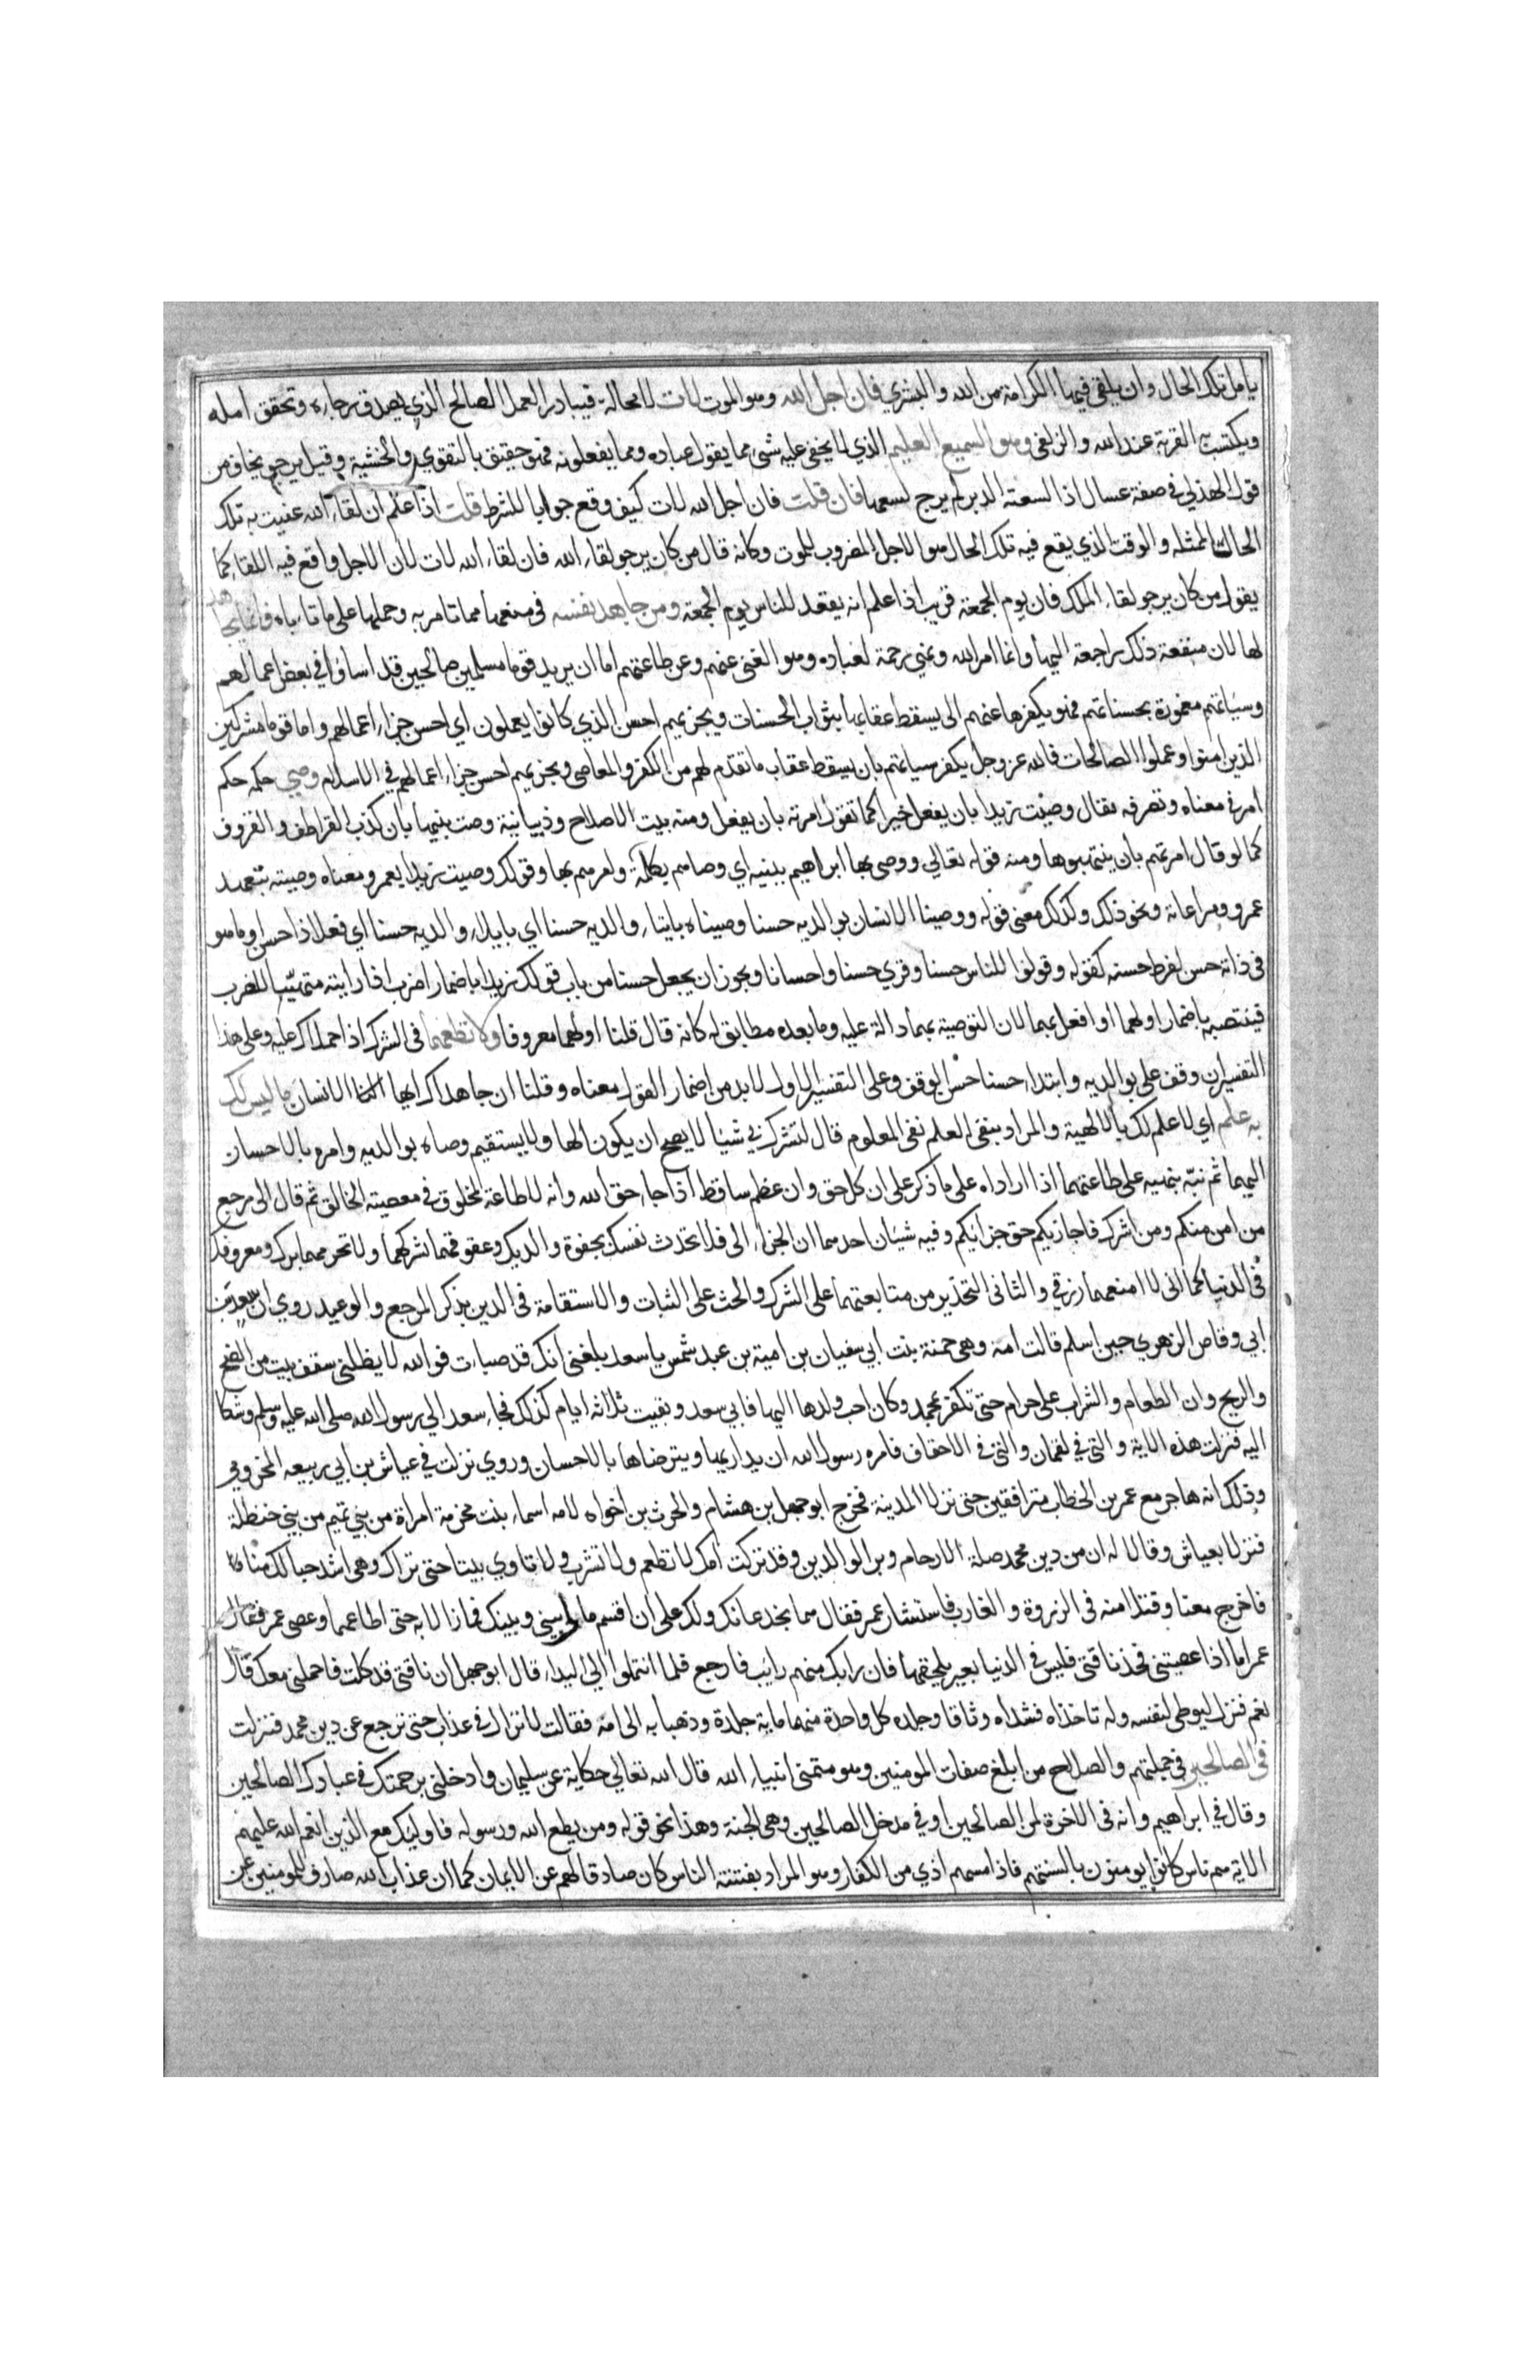 يامل تلك الحال وان يلقى فيها الكرامة من الله والبشري فان اجل الله وهو الموت لات لا محالة فيبادر العمل الصالح الذي يصدق رجاءه وتحقق امله
ويكتسب به القربة عند الله والزلفى وهو السميع العليم الذي لا يخفى عليه شئ مما يقول عباده ومما يفعلونه فهو حقيق بالتقوي والخشية وقيل يرجو يخاف من
قول الهذلي في صفة عسال اذا لسعته الدبر لم يرج لسعها فان قلت فان أجل الله لات كيف وقع جوابا للشرط قلت اذا علم أن لقاء الله عنيت به تلك
الحال الممثله والوقت الذي يقع فيه تلك الحال هو الاجل المضروب للموت وكانه قال من كان يرجو لقاء الله فان لقاء الله لات لان الاجل واقع فيه اللقاء كما
يقول من كان يرجو لقاء الملك فان يوم الجمعة قريب اذا علم انه يقعد للناس يوم الجمعة ومن جاهد نفسه في منعها مما تامر به وحملها على ما تاباه فانما يجاهد
لها لان منفعة ذلك راجعة اليها وانما امر الله ونهي رحمة لعباده وهو الغني عنهم وعن طاعتهم اما ان يريد قوما مسلمين صالحين قد اساؤا في بعض اعمالهم
وسياتهم مغمورة بحسناتهم فهو يكفرها عنهم الى يسقط عقابها بثواب الحسنات ويجزيهم احسن الذي كانوا يعملون اي احسن جزاء اعمالهم واما قوما مشركين
الذين امنوا وعملوا الصالحات فالله عز وجل يكفر سياتهم بان يسقط عقاب ما تقدم لهم من الكفر والمعاصى ويجزيهم احسن جزاء اعمالهم في الاسلام وصي حكمه حكم
أمر في معناه وتصرفه يقال وصيت زيدا بان يفعل خيرا كما تقول امرته بان يفعل ومنه بيت الاصلاح وذبيانية وصت بنيها بأن كذب القراطف والقروف
كما لو قال امرتهم بأن ينتهبوها ومنه قوله تعالي ووصى بها ابراهيم ببنيه اي وصاهم بكلمة ولعرهم بها وقولك وصيت زيدا بعمرو معناه وصيته بتعهد
عمرو ومراعاته ونحو ذلك وكذلك معنى قوله ووصينا الانسان بوالديه حسنا وصيناه بايتاء والديه حسنا اي بايلاء والديه حسنا اي فعلا ذا حسن او ما هو
في ذاته حسن لفرط حسنه كقوله وقولوا للناس حسنا وقري حسنا واحسانا ويجوز ان يجعل حسنا من باب قولك زيدا باضمار اضرب اذا رايته متهيئا للضرب
فينتصب باضمار اولهما او افعل بهما لان التوصية بهما دالة عليه وما بعده مطابق له كانه قال قلنا اولهما معروفا ولا تطعهما في الشرك اذا حملاك عليه وعلى هذا
التفسير ان وقف على بوالديه وابتداء حسنا حسن الوقف وعلى التفسير الاول لابد من اضمار القول معناه وقلنا ان جاهداك ايها الانسان ما ليس لك
به علم اي لا علم لك بالالهية والمراد بنفى العلم نفى المعلوم قال لتشرك بي شيا لا يصح ان يكون الها ولا يستقيم وصاه بوالديه وامره بالاحسان
اليهما ثم نبه بنهيه على طاعتهما اذا اراداه على ما ذكر على ان كل حق وان عظم ساقط اذا جاء حق الله وانه لا طاعة لمخلوق في معصية الخالق ثم قال الى مرجع
من امن منكم ومن اشرك فاجازيكم حق جزائكم وفيه شيان احدهما ان الجزاء الى فلا تحدث نفسك بجفوة والديك وعقوقهما لشركهما ولا تحرمهما برك ومعروفك
في الدنيا كما انى لا امنعهما رزقي والثانى التحذير من متابعتهما على الشرك والحث على الثبات والاستقامة في الدين بذكر المرجع والوعيد روي ان سعد بن
ابي وقاص الزهري حين اسلم قالت امه وهي حمنة بنت ابي سفيان بن امية بن عبد شمس يا سعد بلغنى انك قد صبات فوالله لا يظلنى سقف بيت من الضح
والريح وان الطعام والشراب على حرام حتى تكفر بمحمد وكان احب ولدها اليها فابي سعد وبقيت ثلاثة ايام كذلك فجاء سعد الي رسول الله صلى الله عليه وسلم وشكا
اليه فنزلت هذه الاية والتى في لقمان والتى في الاحقاف فامره رسول الله ان يداريها ويترضاها بالاحسان وروي نزلت في عياش بن أبي ربيعه المخزومي
وذلك انه هاجر مع عمر بن الخطاب مترافقين حتى نزلا المدينة فخرج ابو جهل بن هشام والحرث بن اخواه لامه اسماء بنت مخرمة امراة من بني تميم من بني حنظلة
فنزلا بعياش وقالا له ان من دين محمد صلة الارحام وبر الوالدين وقد تركت امك لا تطعم ولا تشرب ولا تاوي بيتا حتى تراك وهي اشد حبا لك منا
فاخرج معنا وفتلا منه في الذروة والغارب فاستشار عمر فقال هما يخدعانك ولك على ان اقسم مالي بيني وبينك فما زالا به حتى اطاعهما وعصى عمر فقال
عمر اما اذا عصيتنى فخذ ناقتى فليس في الدنيا بعير يلحقها فان رابك منهم رايب فارجع فلما انتهوا الي البيداء قال ابو جهل ان ناقتى قد كلت فاحملنى معك قال
نعم فنزل ليوطى لنفسه وله تاخذاه فشداه وثاقا وجلده كل واحدة منهما ماية جلدة وذهبا به الى امه فقالت لا تزال في عذاب حتى ترجع عن دين محمد فنزلت
في الصالحين في جملتهم والصلاح من ابلغ صفات المومنين وهو متمنى انبياء الله قال الله تعالي حكاية عن سليمان وادخلنى برحمتك في عبادك الصالحين
وقال في ابراهيم وانه في الاخرة لمن الصالحين او في مدخل الصالحين وهي الجنة وهذا نحو قوله ومن يطع الله ورسوله فاوليك مع الذين انعم الله عليهم
الاية هم ناس كانوا يومنون بالسنتهم فاذا مسهم اذي من الكفار وهو المراد بفتنة الناس كان صادقا لهم عن الايمان كما ان عذاب الله صارف للمومنين عن